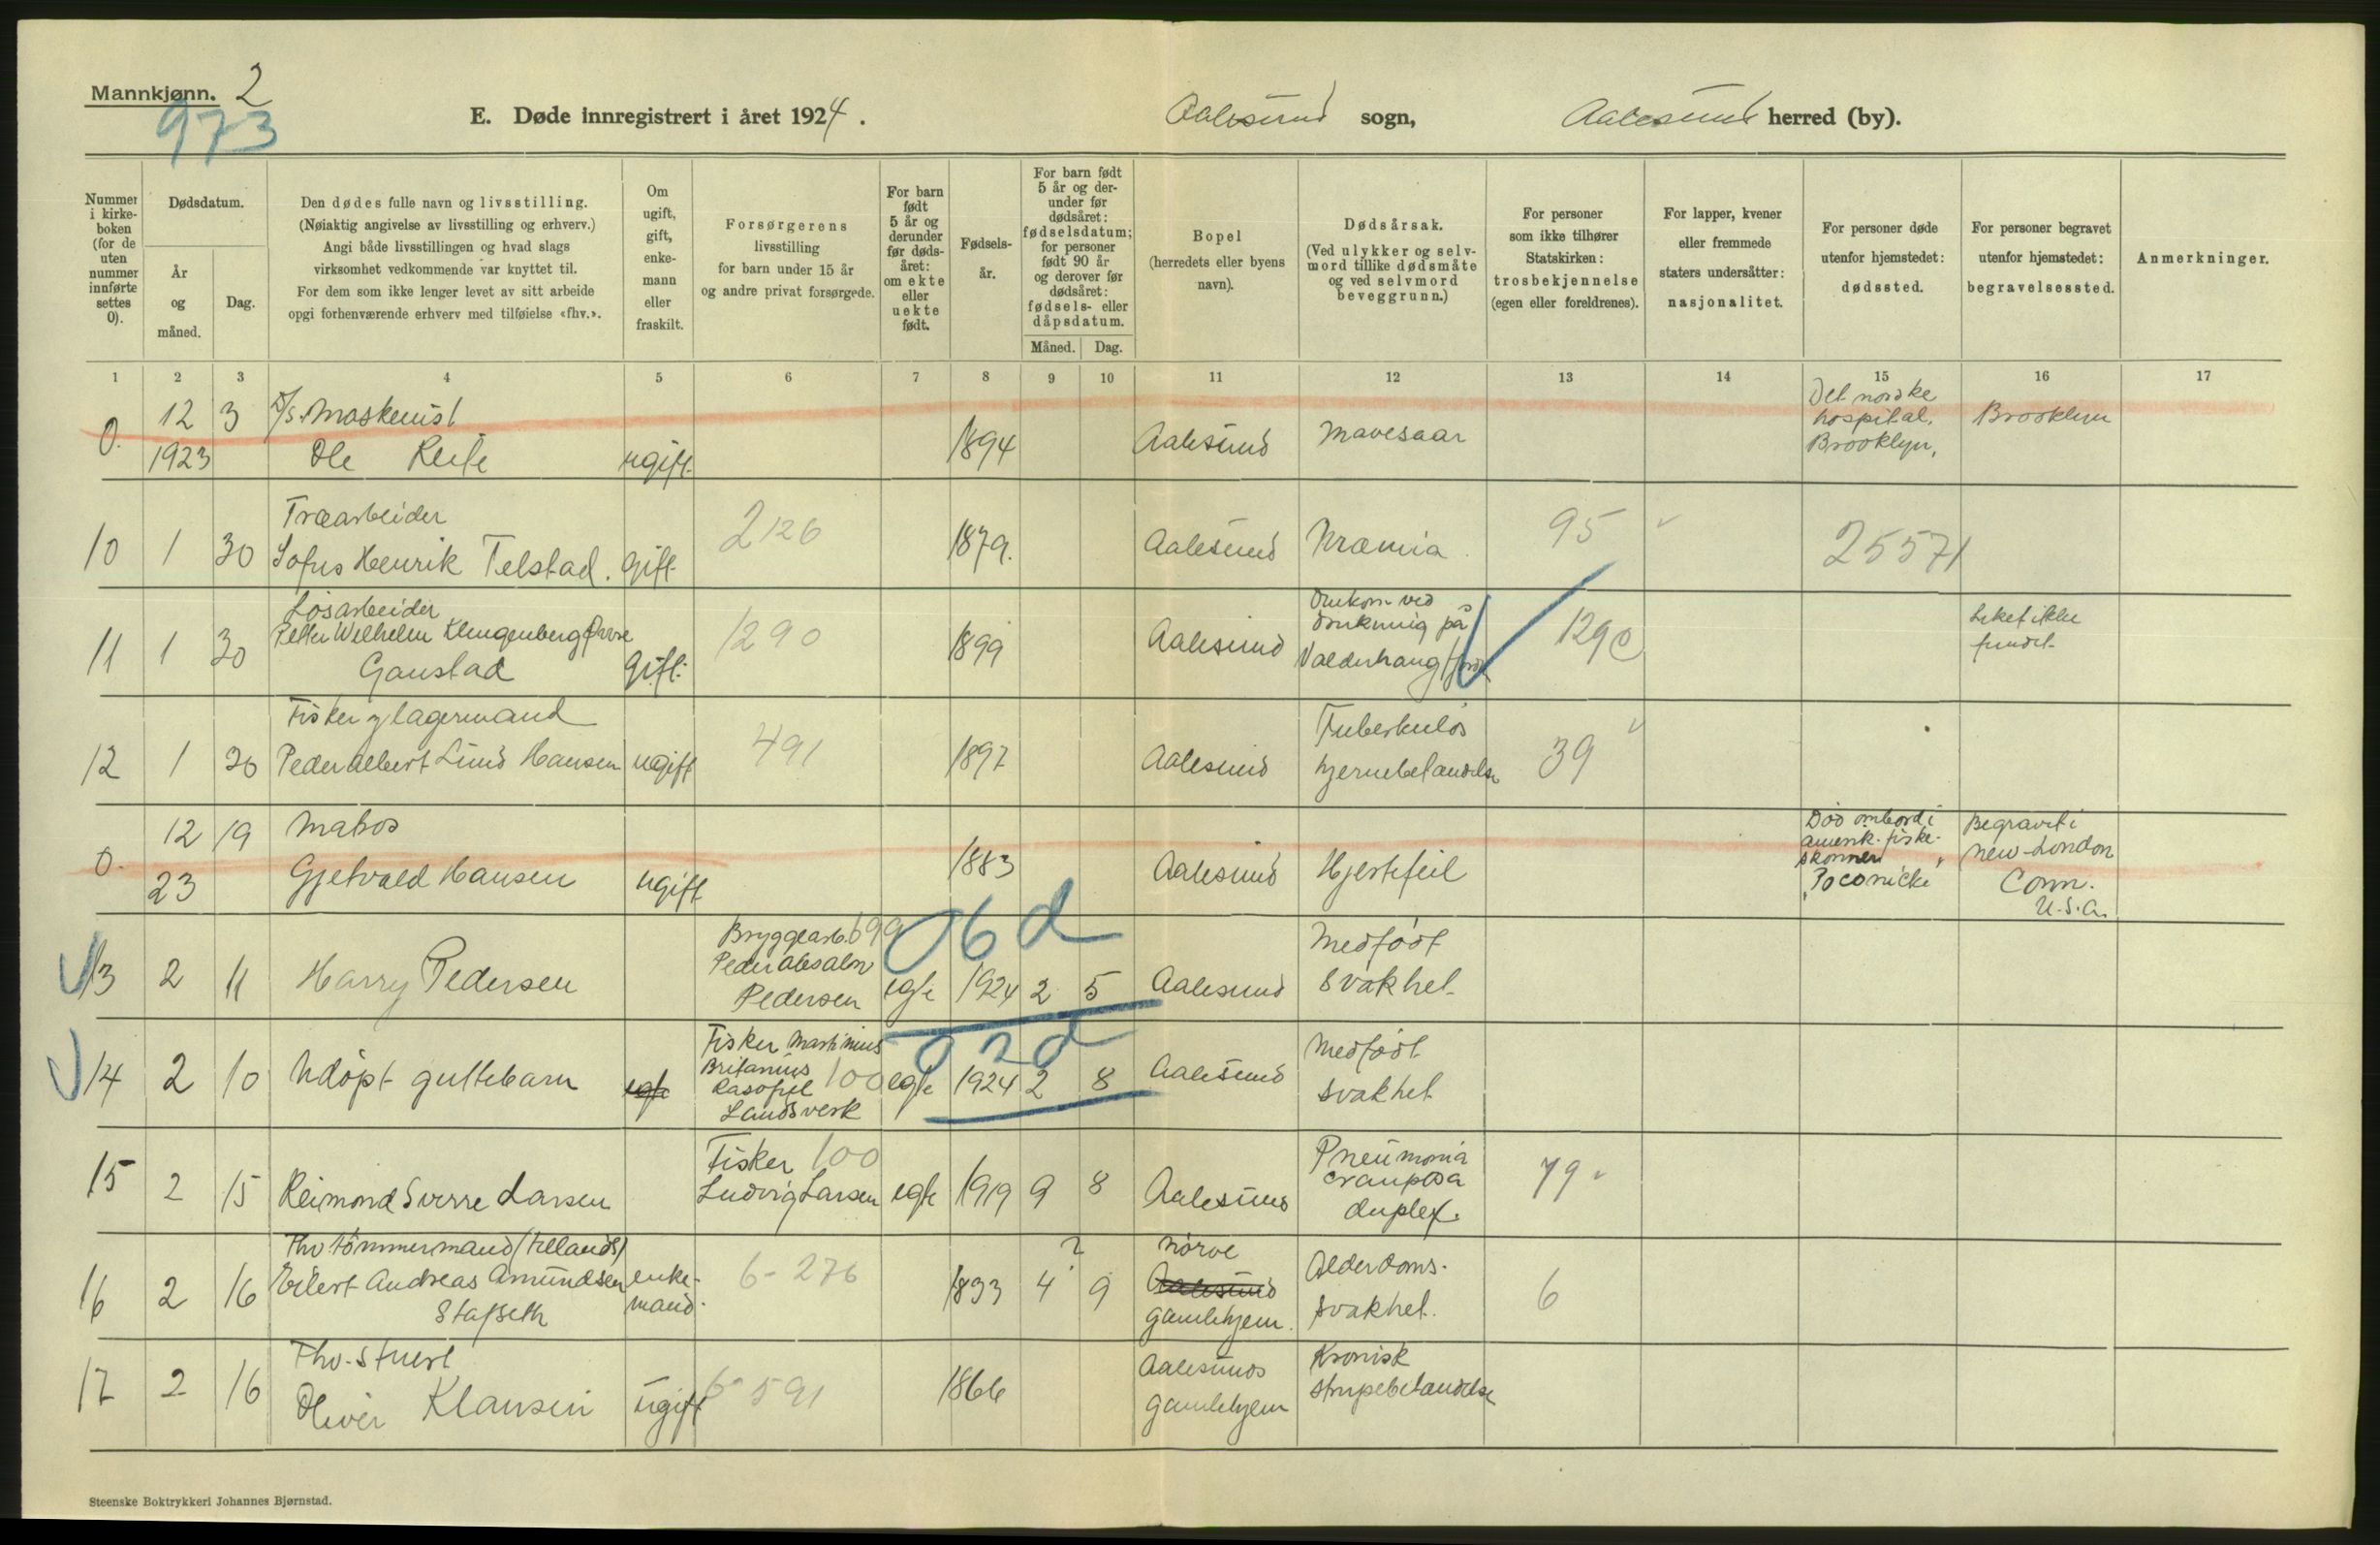 Mannkjønn. 2
973
E. Døde innregistrert i året 1924.
Aalesund sogn, Aalesund herred (by).
Nummer i kirke-boken (for de uten nummer innførte settes 0).
Dødsdatum.
År og måned.
Dag.
Den dødes fulle navn og livsstilling.
(Nøiaktig angivelse av livsstilling og erhverv.)
Angi både livsstillingen og hvad slags
virksomhet vedkommende var knyttet til.
For dem som ikke lenger levet av sitt arbeide
opgi forhenværende erhverv med tilføielse «fhv.».
Om ugift, gift, enke-mann eller fraskilt.
Forsørgerens
livsstilling
for barn under 15 år
og andre privat forsørgede.
For barn født 5 år og derunder før døds-året: om ekte eller uekte født.
Fødsels-år.
For barn født 5 år og der-under før dødsåret: fødselsdatum; for personer født 90 år og derover før dødsåret: fødsels- eller dåpsdatum.
Måned. Dag.
Bopel
(herredets eller byens navn).
Dødsårsak.
(Ved ulykker og selv-mord tillike dødsmåte og ved selvmord beveggrunn.)
For personer
som ikke tilhører
Statskirken:
trosbekjennelse
(egen eller foreldrenes).
For lapper, kvener
eller fremmede
staters undersåtter:
nasjonalitet.
For personer døde
utenfor hjemstedet:
dødssted.
For personer begravet
utenfor hjemstedet:
begravelsessted.
Anmerkninger.
1 2 3 4 5 6 7 8 9 10 11 12 13 14 15 16 17
0. 12 1923 3 D/s. Maskinist
Ole ugift 1894 Aalesund Mavesaar
Det norske
hospital,
Brooklyn,
Brooklyn
10 1 30 Træarbeider
Sofus Henrik Telstad. gift 2126 1879. Aalesund Uræmia. 95 25571
11 1 30 Løsarbeider
Petter Wilhelm Klingenberg
Gaustad gift 1290 1899 Aalesund
Omkom ved
drukning på
Valderhaugfjord
1290
Liket ikke
fundet
12 1 26 Fisker og lagermand
Peder Albert Lund Hansen ugift 491 1897 Aalesund
Tuberkuløs
hjernebetændelse
39
0. 12 23 19 Matros
Gjetvald Hansen ugift 1883 Aalesund Hjertefeil
Død ombord i
amerik. fiske-
skonner
"Poconicki"
Begravet i
New-London
Conn.
U.S.A.
13 2 11 Harry Pedersen
Bryggearb. 699
Peder Absalon
Pedersen
egte 1924 2 5 Aalesund
06 d
Medfødt
svakhet
14 2 10 Udøpt guttebarn egte
Fisker Martinius
Britanius
Landsverk
100 egte 1924 2 8 Aalesund
02d
Medfødt
svakhet
15 2 15 Reimond Sverre Larsen
Fisker 100
Ludvig Larsen
egte 1919 9 8 Aalesund
Pneumonia
crouposa
duplex.
79
16 2 16 Fhv tømmermand (tillands)
Eilert Andreas Amundsen
Stafseth
enke-
mand.
6-276 1833 4 ? 9
Nørve
Aalesund
gamlehjem.
Alderdoms-
svakhet.
6
17 2 16 Fhv. Stuert
Oliver Klausen ugift 6-591 1866
Aalesunds
gamlehjem
Kronisk
strupebetændelse
Steenske Boktrykkeri Johannes Bjørnstad.